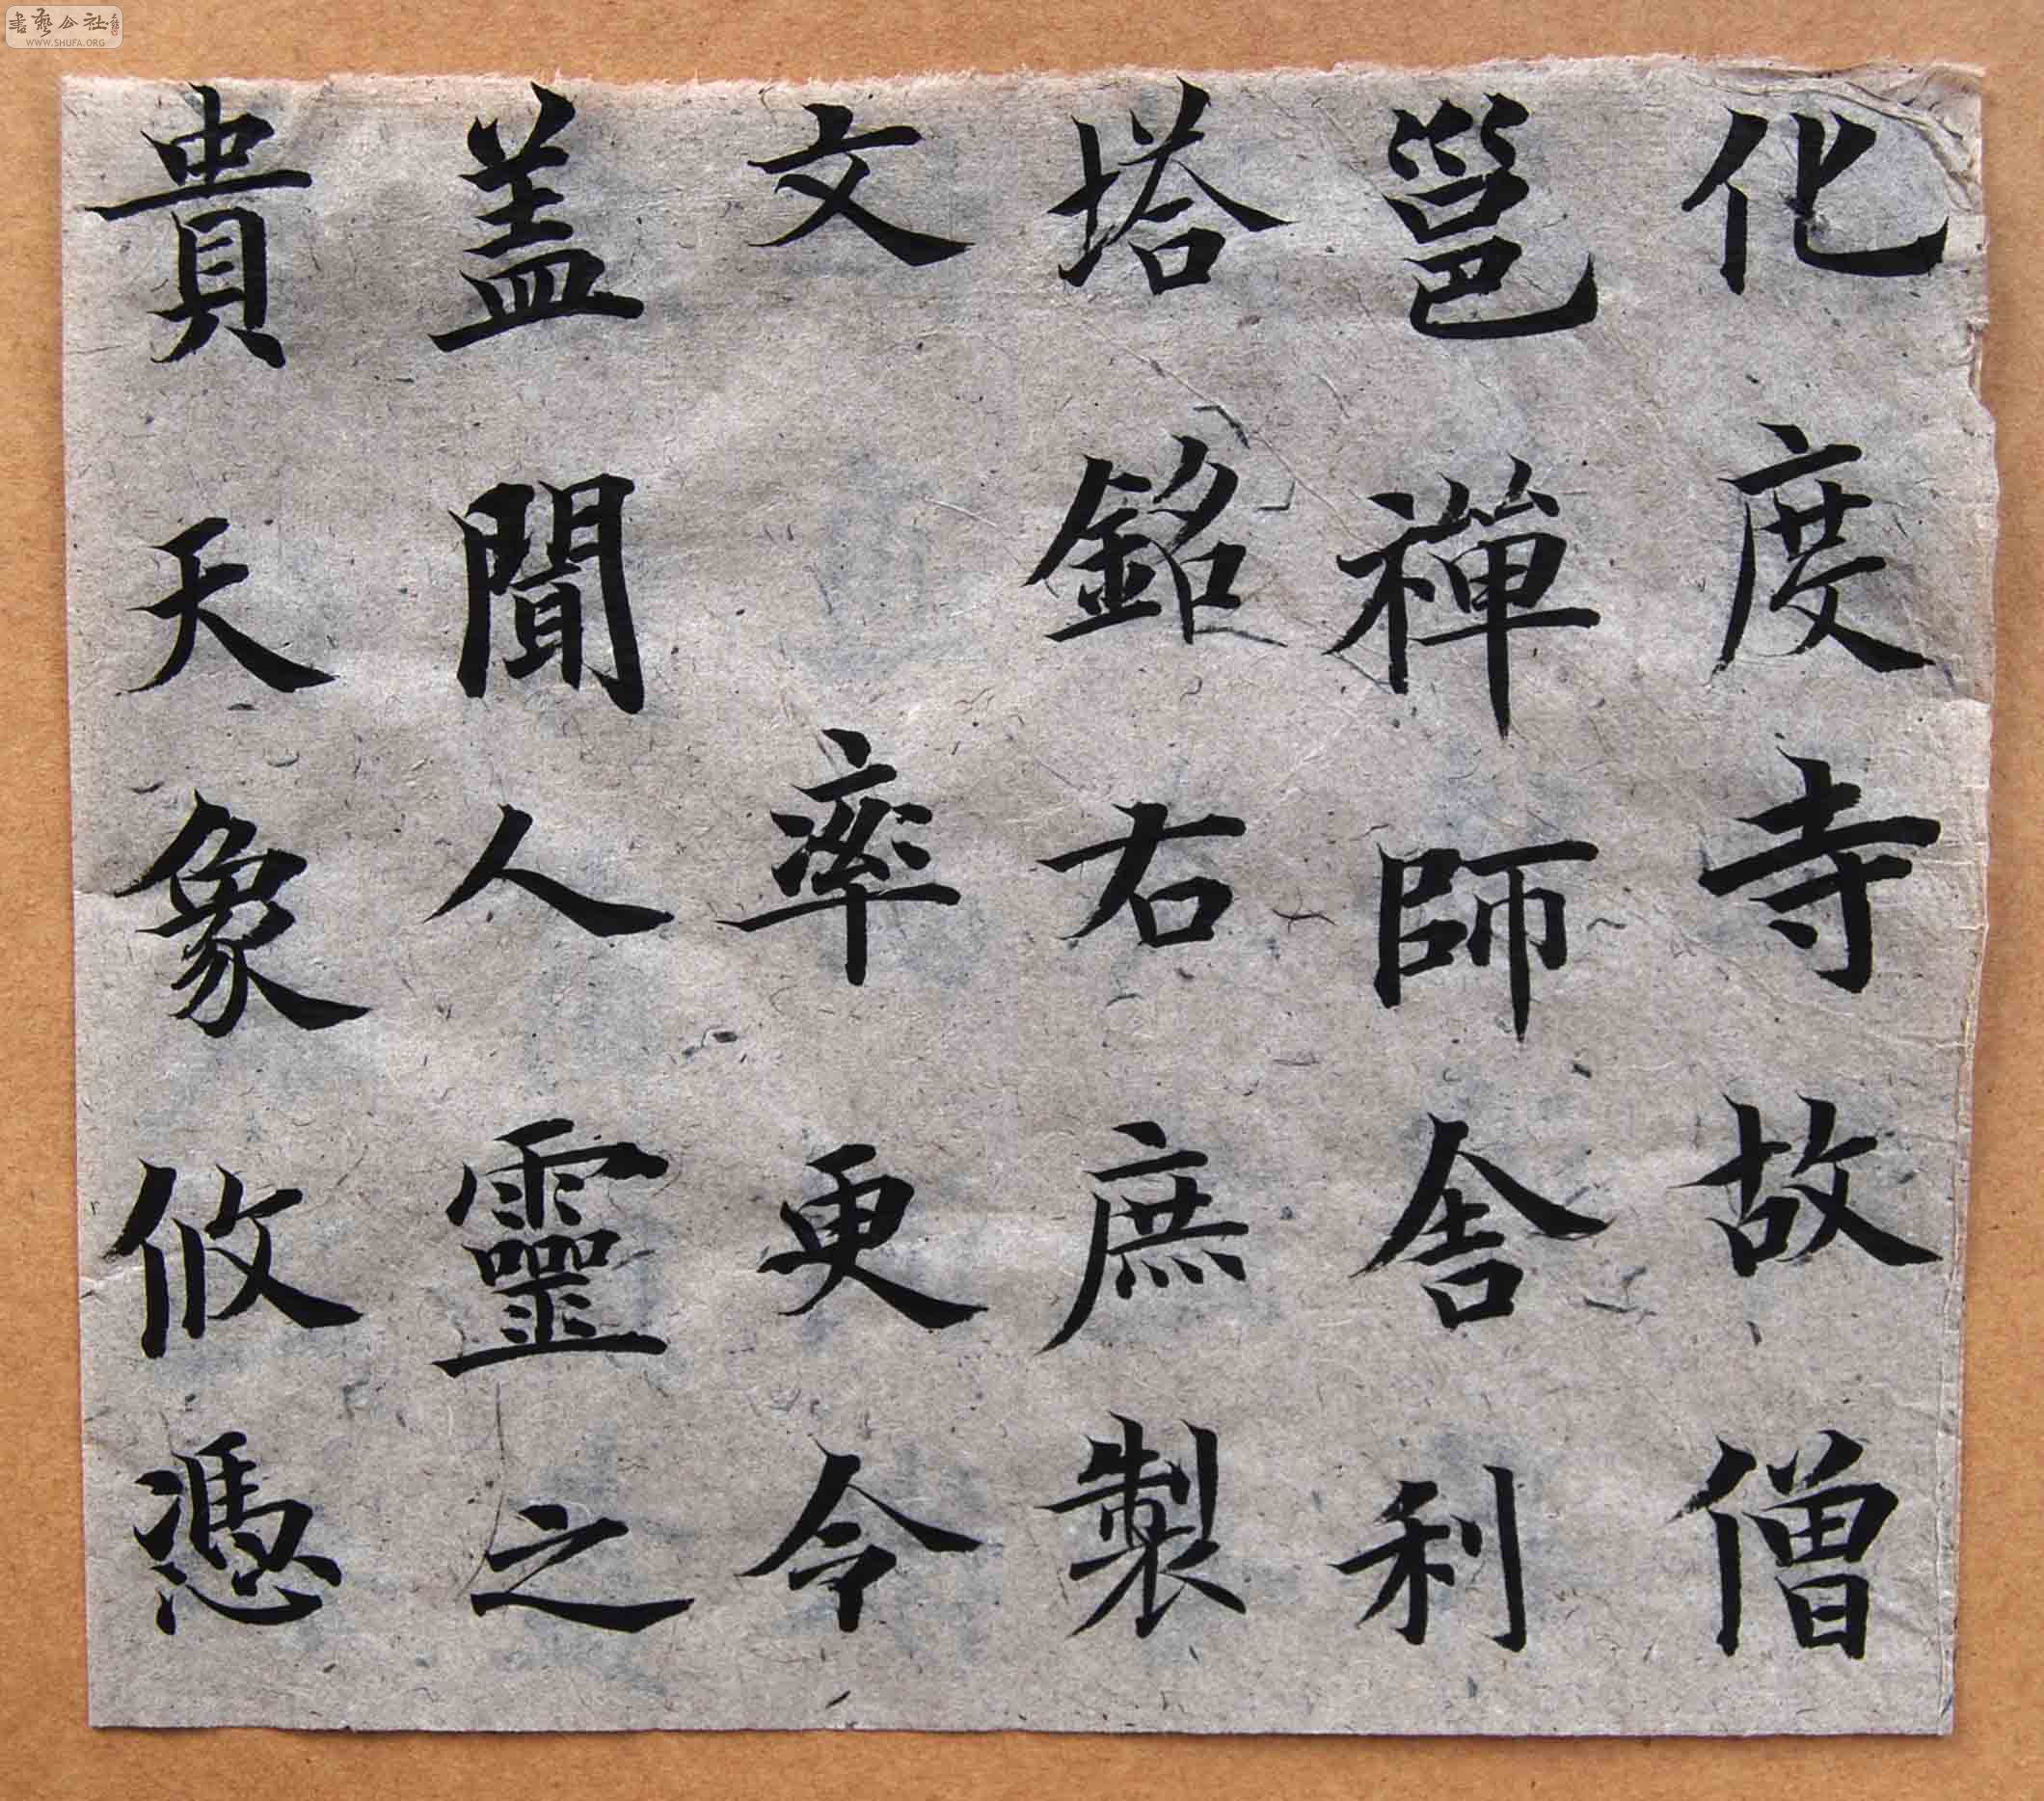 化度寺故僧
邕禪師舍利
塔銘右庶製
文 率更令
盖聞人靈之
貴天象攸憑
書藝公社
WWW.SHUFA.ORG